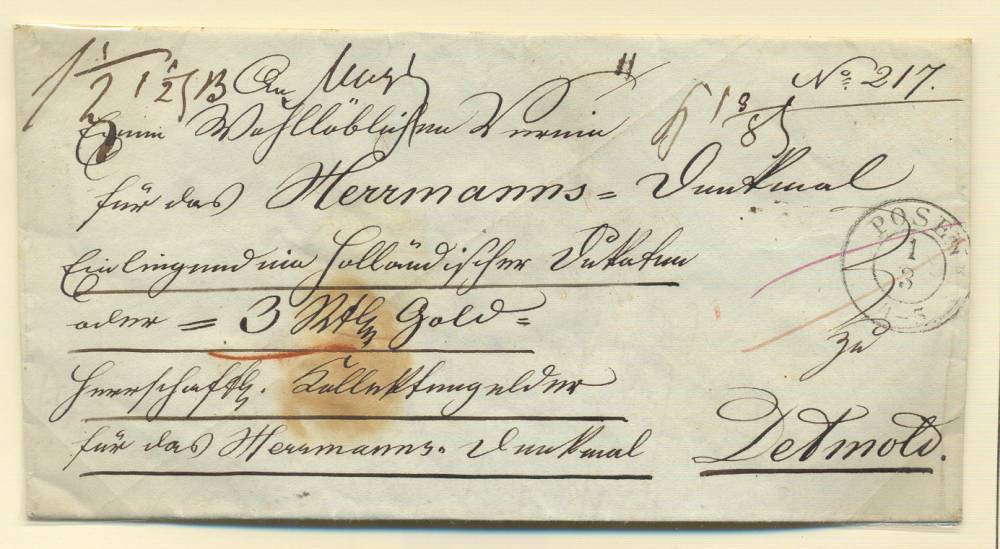 No. 217.
1 1/2 1 1/2 An
Einen Wohllöblichen Verein
für das Herrmanns=Denkmal
Einliegend ein Holländischer Dukaten
oder = 3 Rthlr Gold=
Herrschaftl. Kollektengelder
für das Herrmanns=Denkmal
POSEN
1
3
zu
Detmold.